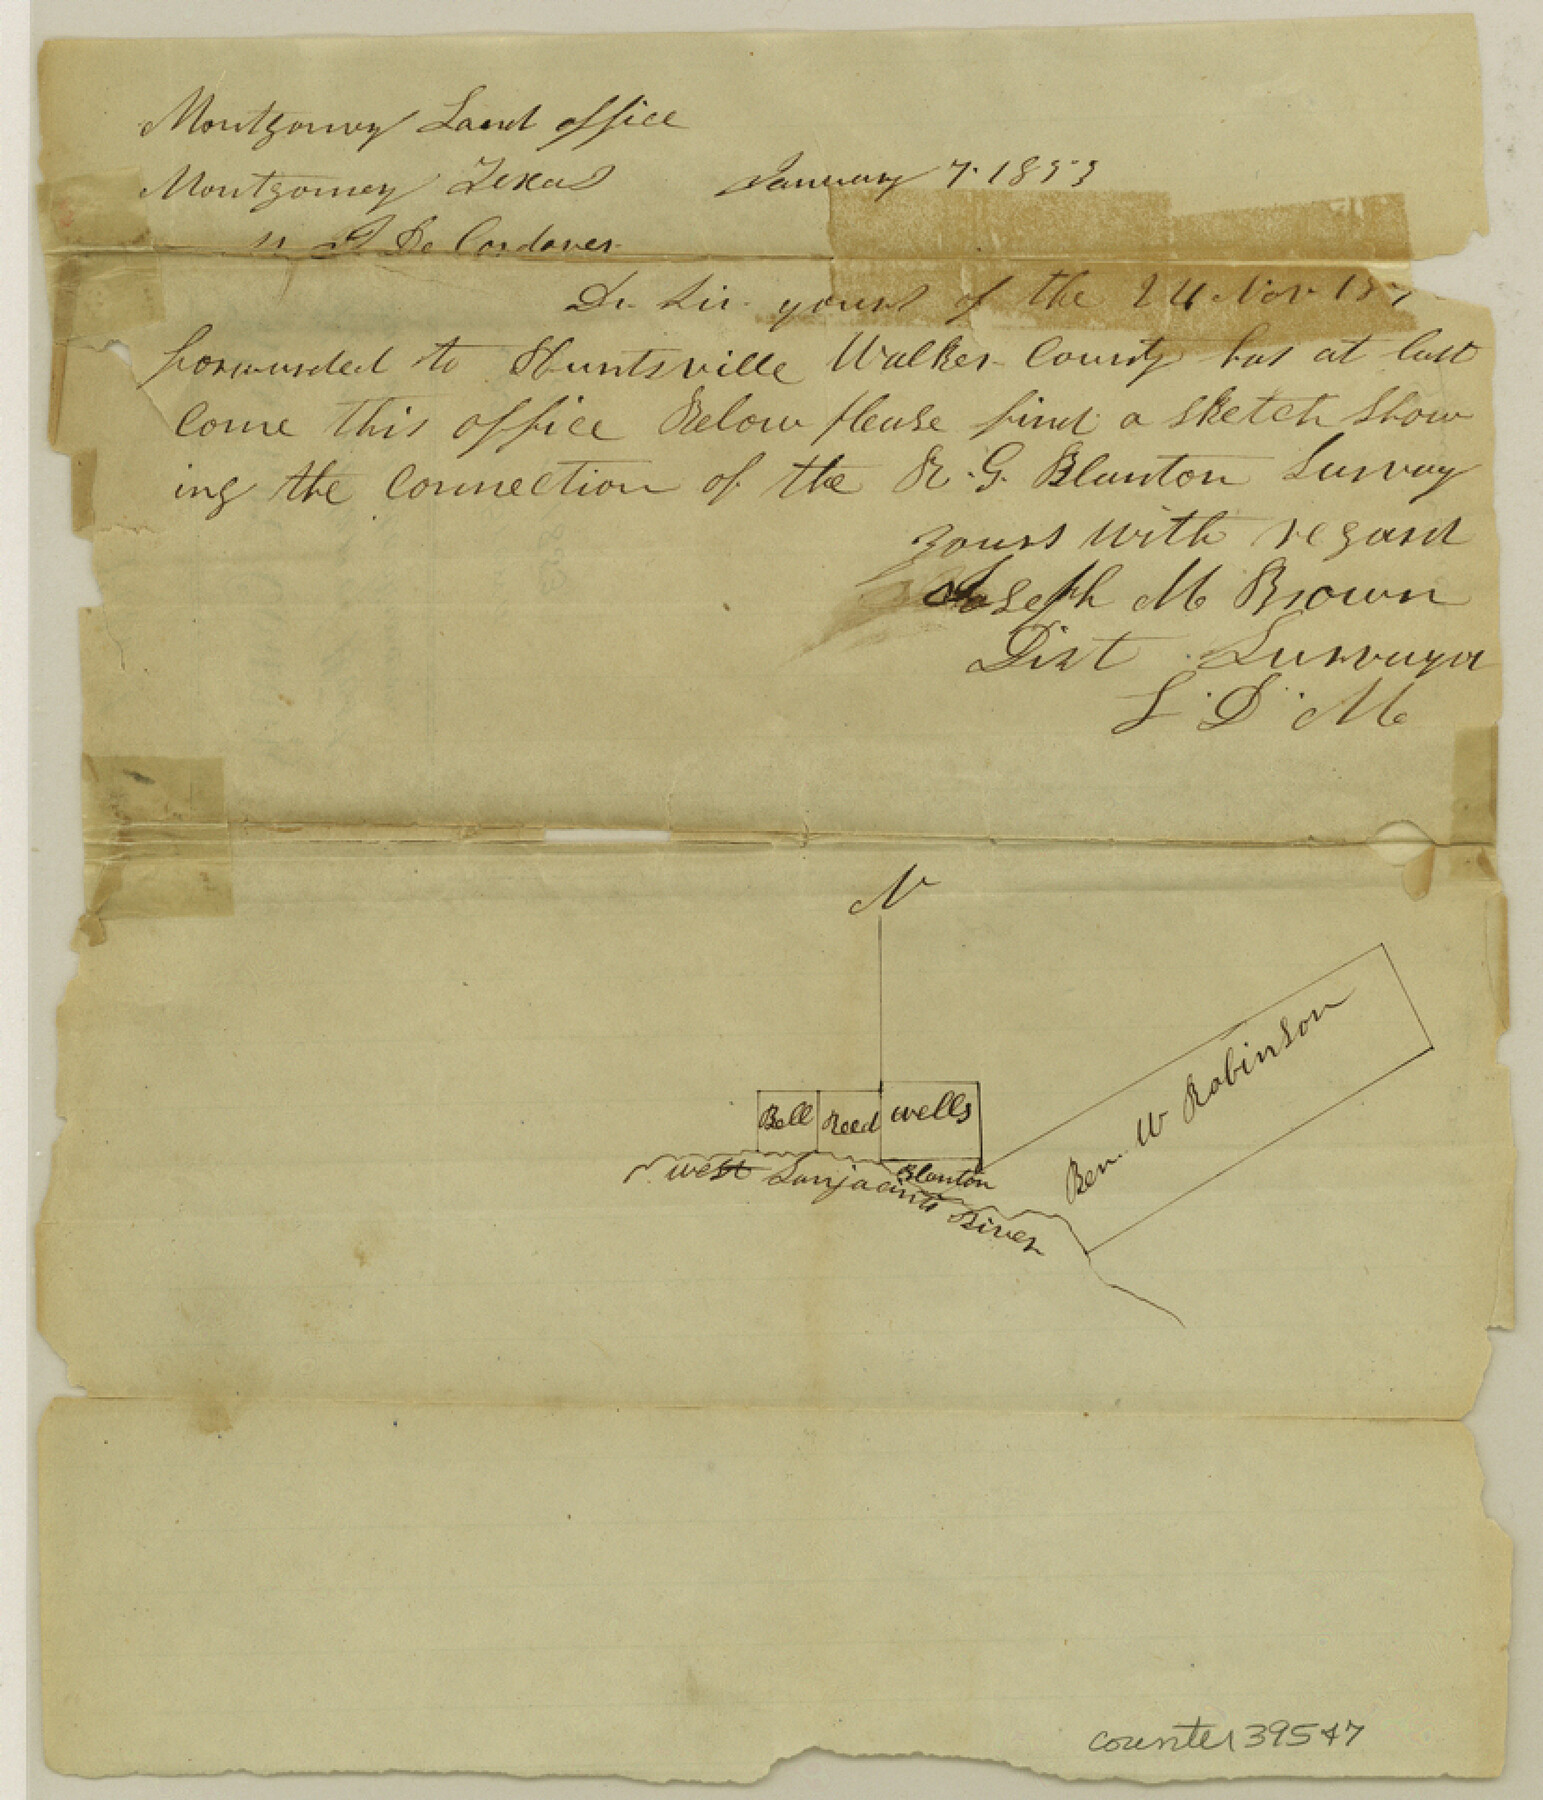 Montgomery Land office
Montgomery Texas January 7. 1853
De Cordover
Dr. Sir yours of the 24 Nov 185
forwarded to Huntsville Walker County has at last
Come this office Below please find a sketch show
ing the Connection of the R. G. Blanton Survay
yours with regard
Joseph M Brown
Dist Survayor
L. D. M
N
Bell Reed wells
Ben. W Robinson
Blanton
west Sanjacinto River
counter 39547